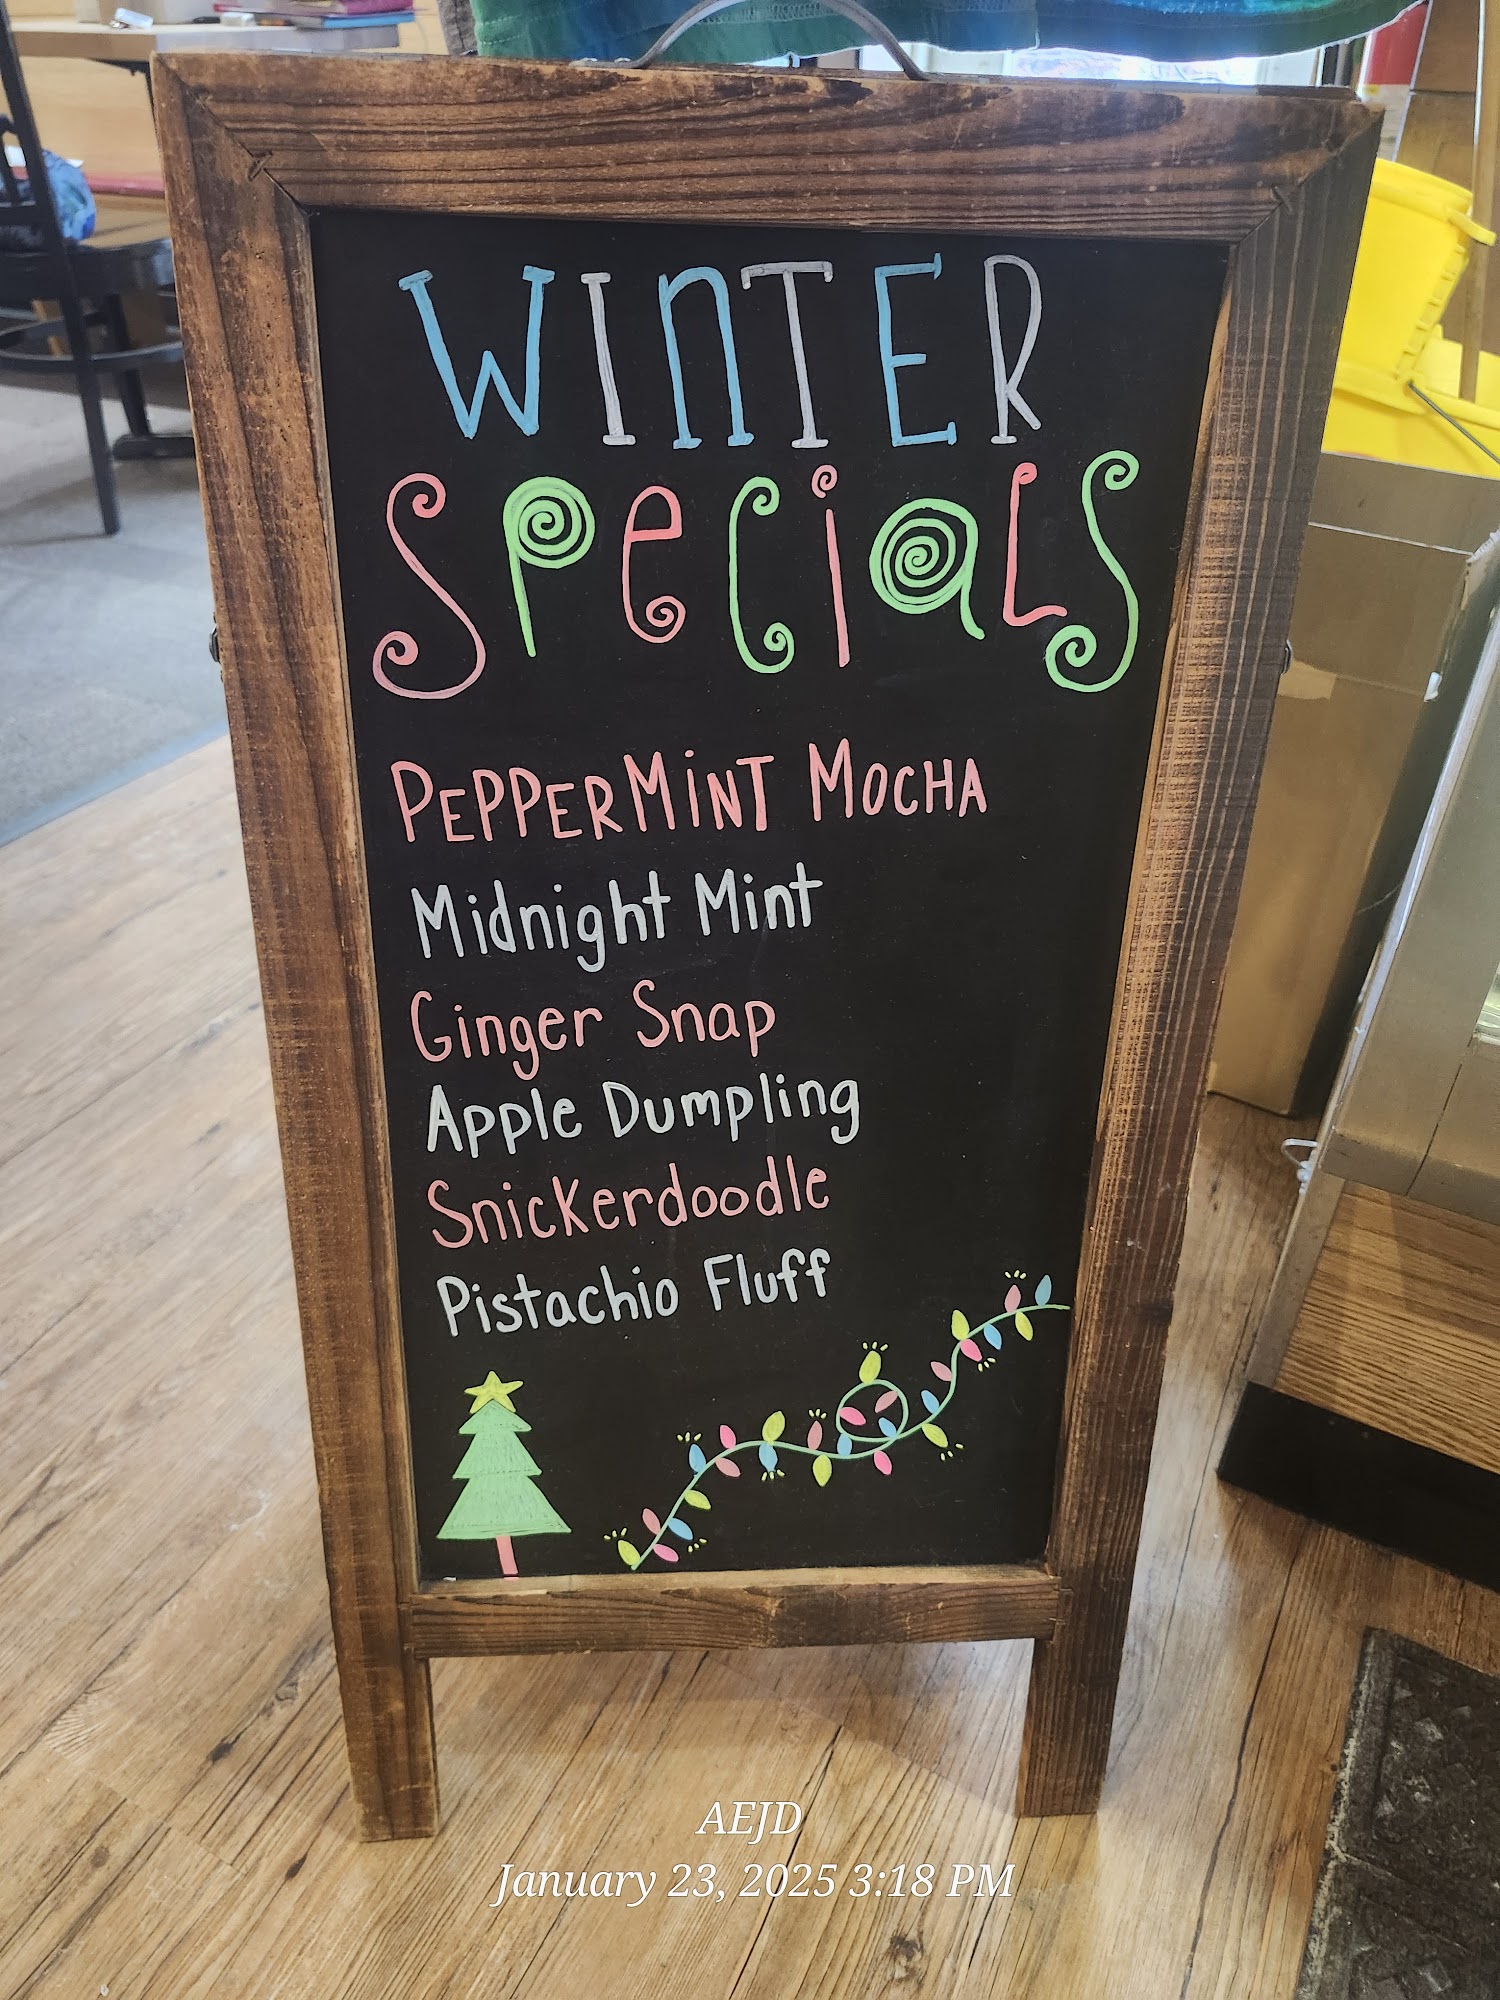 WINTER
SPeCiaLS
PEPPERMiNT MOCHA
Midnight Mint
Ginger Snap
Apple Dumpling
Snickerdoodle
Pistachio Fluff
AEJD
January 23, 2025 3:18 PM